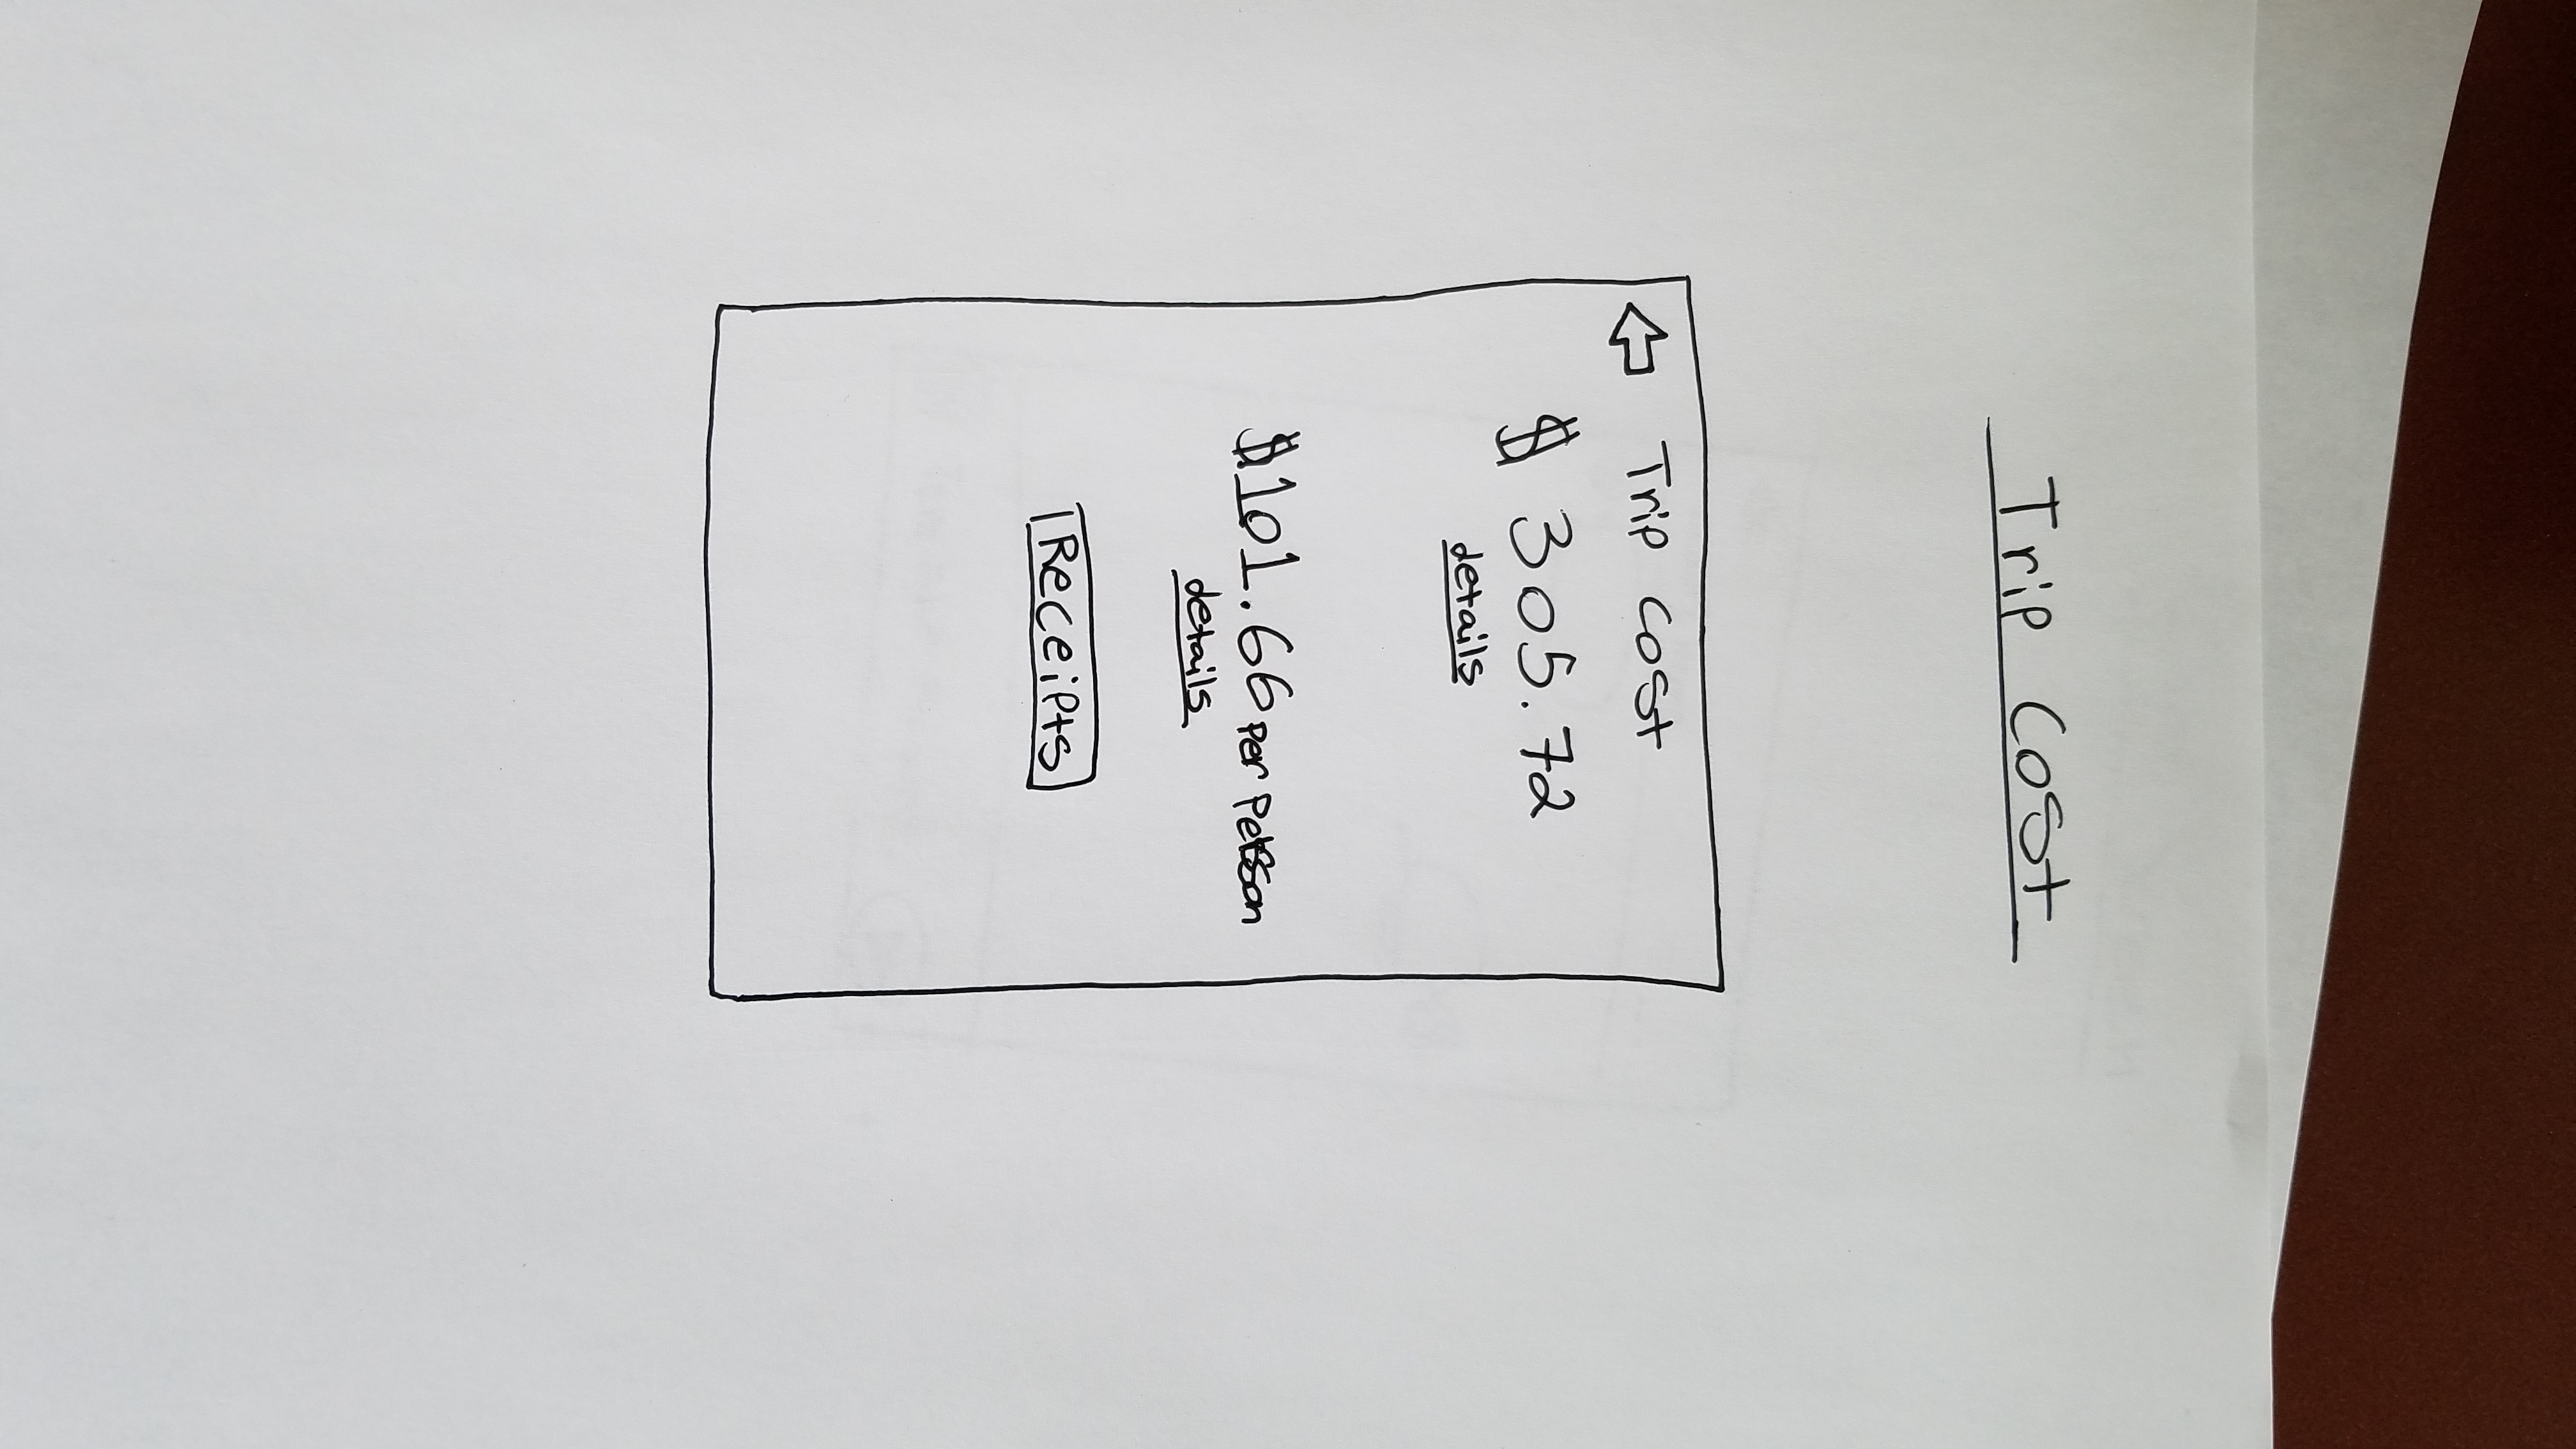 Trip Cost
Trip Cost
$ 305.72
details
$101.66 per person
details
Receipts